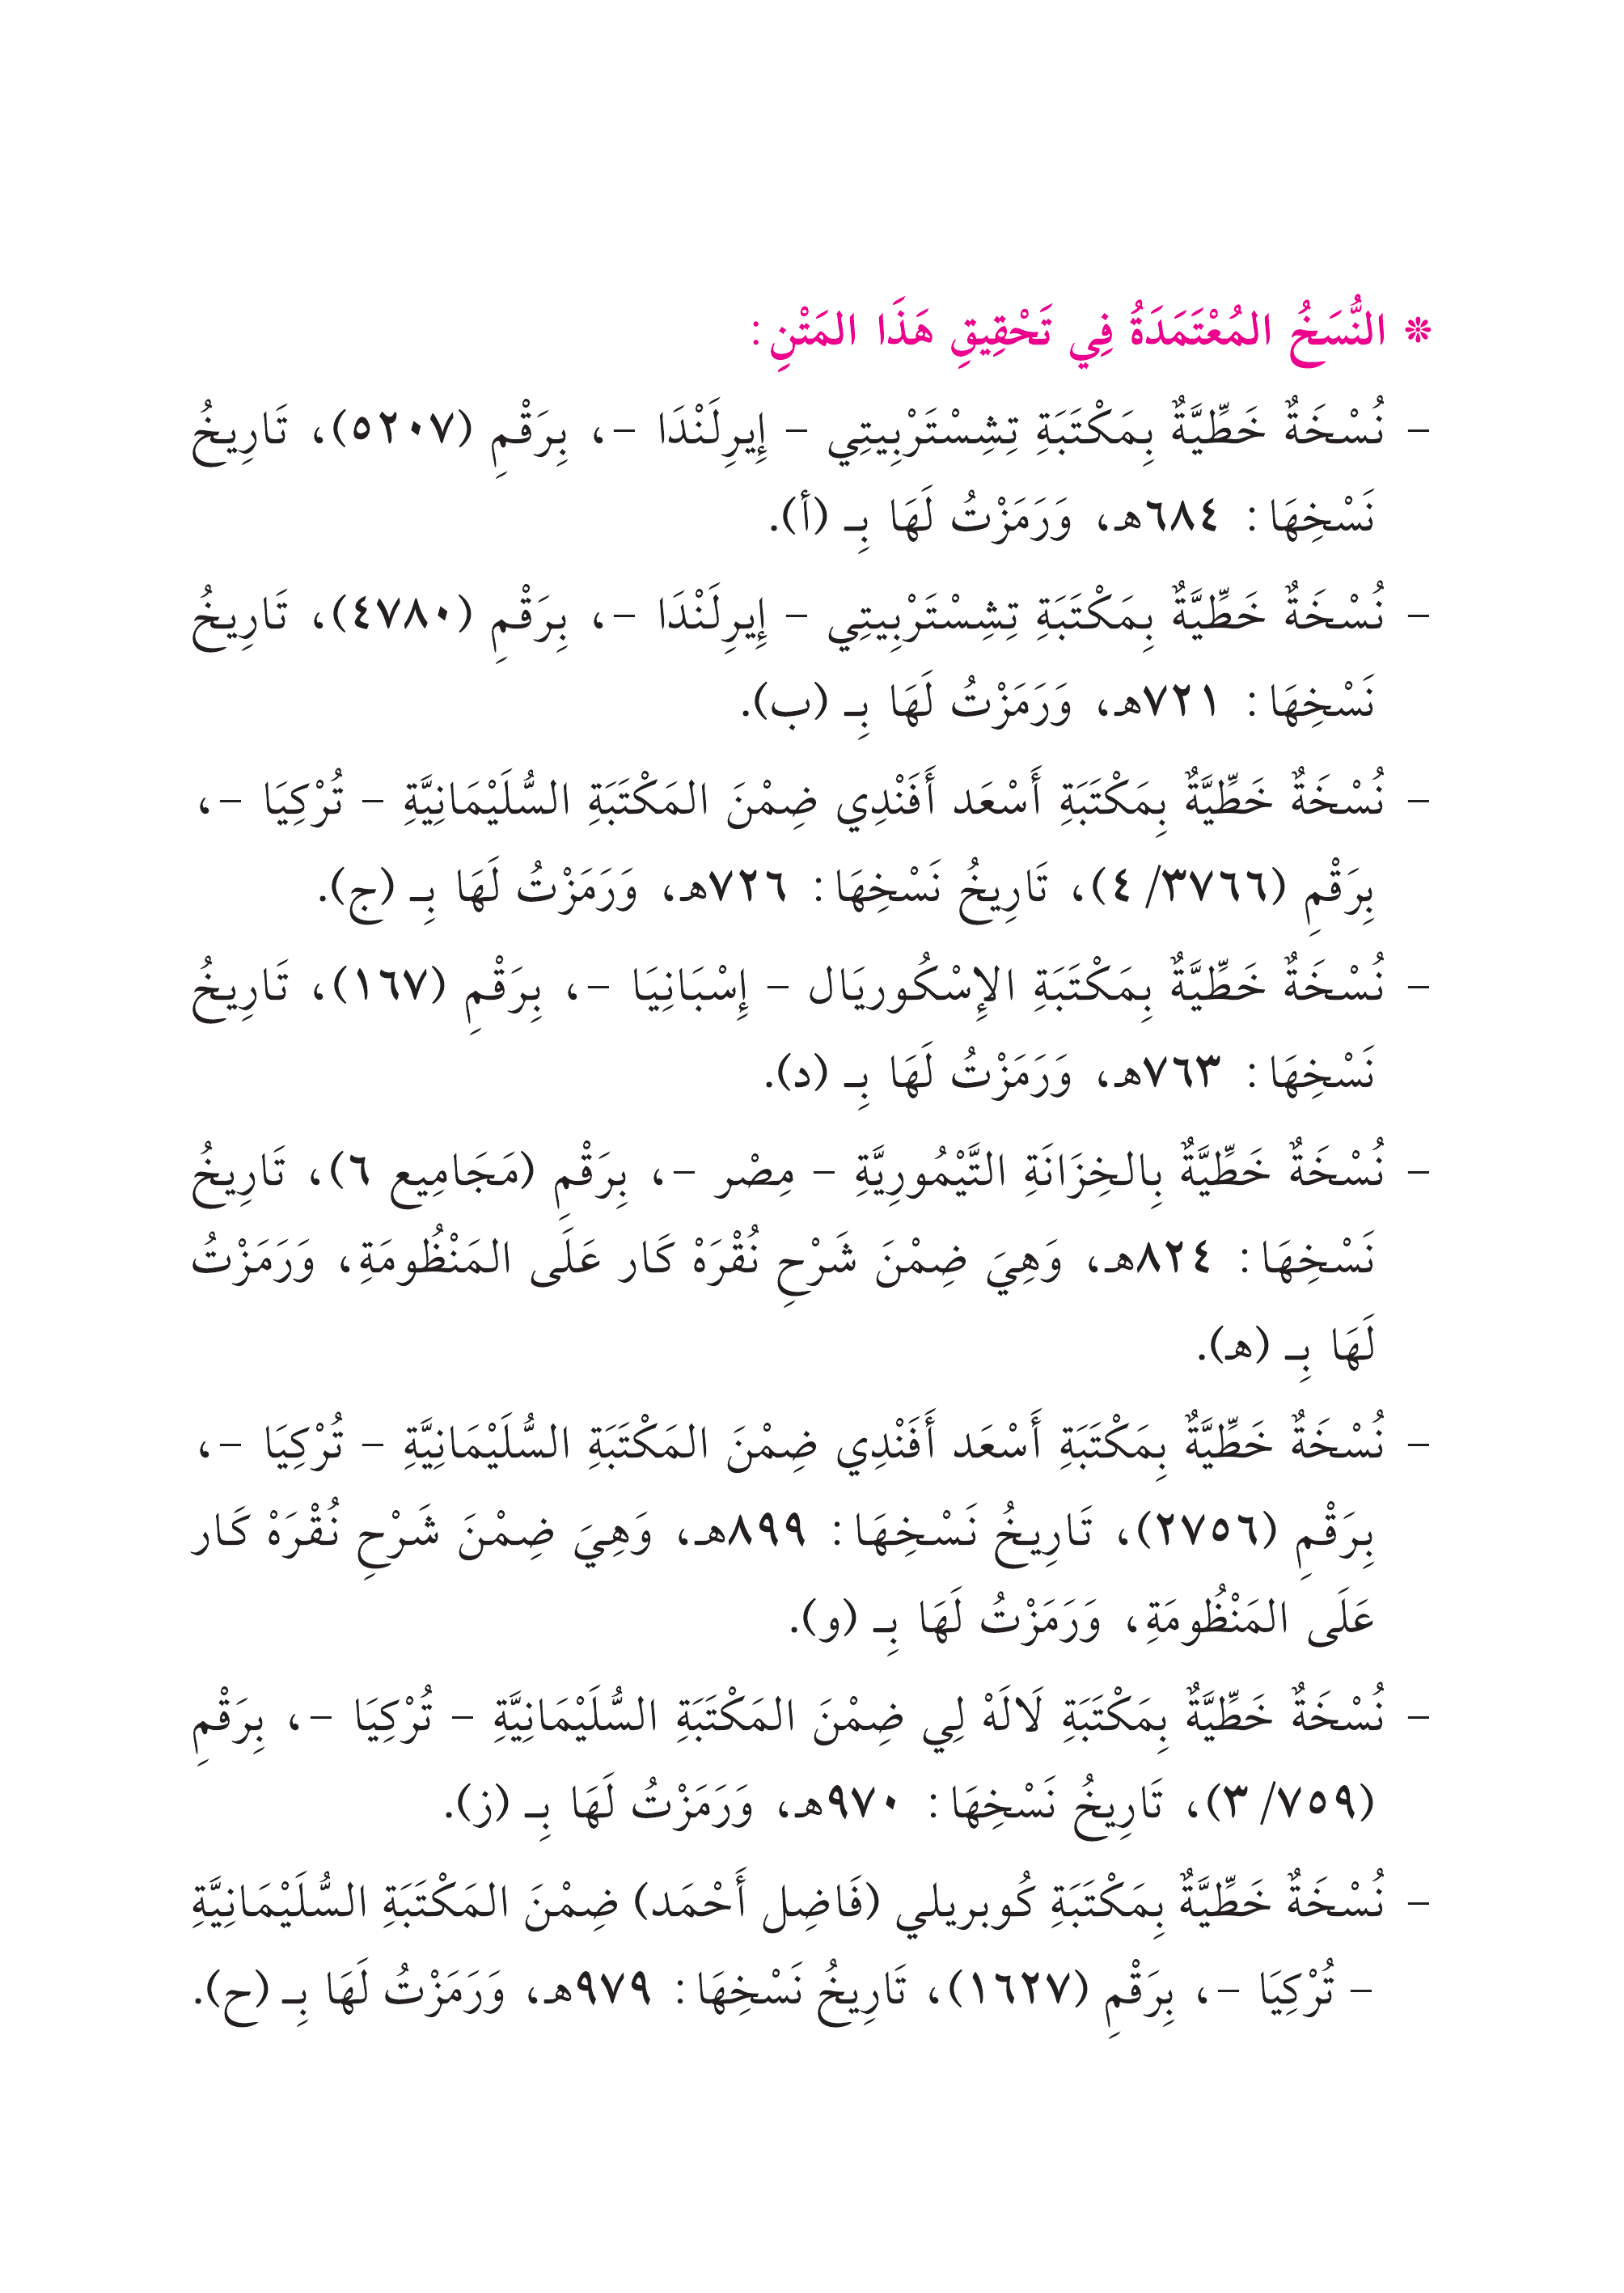 ❊ النُّسَخُ المُعْتَمَدَةُ فِي تَحْقِيقِ هَذَا المَتْنِ:
- نُسْخَةٌ خَطِّيَّةٌ بِمَكْتَبَةِ تِشِسْتَرْبِيتِي - إِيرِلَنْدَا -، بِرَقْمِ (٥٢٠٧)، تَارِيخُ
نَسْخِهَا: ٦٨٤هـ، وَرَمَزْتُ لَهَا بِـ (أ).
- نُسْخَةٌ خَطِّيَّةٌ بِمَكْتَبَةِ تِشِسْتَرْبِيتِي - إِيرِلَنْدَا -، بِرَقْمِ (٤٧٨٠)، تَارِيخُ
نَسْخِهَا: ٧٢١هـ، وَرَمَزْتُ لَهَا بِـ (ب).
- نُسْخَةٌ خَطِّيَّةٌ بِمَكْتَبَةِ أَسْعَد أَفَنْدِي ضِمْنَ المَكْتَبَةِ السُّلَيْمَانِيَّةِ - تُرْكِيَا -،
بِرَقْمِ (٣٧٦٦/ ٤)، تَارِيخُ نَسْخِهَا: ٧٢٦هـ، وَرَمَزْتُ لَهَا بِـ (ج).
- نُسْخَةٌ خَطِّيَّةٌ بِمَكْتَبَةِ الإِسْكُوريَال - إِسْبَانِيَا -، بِرَقْمِ (١٦٧)، تَارِيخُ
نَسْخِهَا: ٧٦٣هـ، وَرَمَزْتُ لَهَا بِـ (د).
- نُسْخَةٌ خَطِّيَّةٌ بِالخِزَانَةِ التَّيْمُورِيَّةِ - مِصْر -، بِرَقْمِ (مَجَامِيع ٦)، تَارِيخُ
نَسْخِهَا: ٨٢٤هـ، وَهِيَ ضِمْنَ شَرْحِ نُقْرَهْ كَار عَلَى المَنْظُومَةِ، وَرَمَزْتُ
لَهَا بِـ (هـ).
- نُسْخَةٌ خَطِّيَّةٌ بِمَكْتَبَةِ أَسْعَد أَفَنْدِي ضِمْنَ المَكْتَبَةِ السُّلَيْمَانِيَّةِ - تُرْكِيَا -،
بِرَقْمِ (٢٧٥٦)، تَارِيخُ نَسْخِهَا: ٨٩٩هـ، وَهِيَ ضِمْنَ شَرْحِ نُقْرَهْ كَار
عَلَى المَنْظُومَةِ، وَرَمَزْتُ لَهَا بِـ (و).
- نُسْخَةٌ خَطِّيَّةٌ بِمَكْتَبَةِ لَالَهْ لِي ضِمْنَ المَكْتَبَةِ السُّلَيْمَانِيَّةِ - تُرْكِيَا -، بِرَقْمِ
(٧٥٩/ ٣)، تَارِيخُ نَسْخِهَا: ٩٧٠هـ، وَرَمَزْتُ لَهَا بِـ (ز).
- نُسْخَةٌ خَطِّيَّةٌ بِمَكْتَبَةِ كُوبريلي (فَاضِل أَحْمَد) ضِمْنَ المَكْتَبَةِ السُّلَيْمَانِيَّةِ
- تُرْكِيَا -، بِرَقْمِ (١٦٢٧)، تَارِيخُ نَسْخِهَا: ٩٧٩هـ، وَرَمَزْتُ لَهَا بِـ (ح).